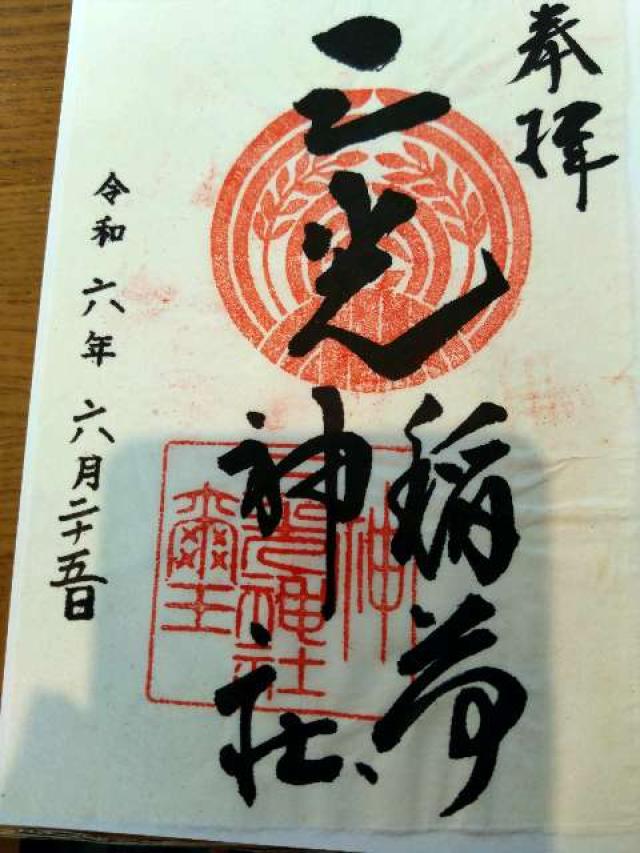 奉拝
三光
稲荷
神社
令和六年六月二十五日